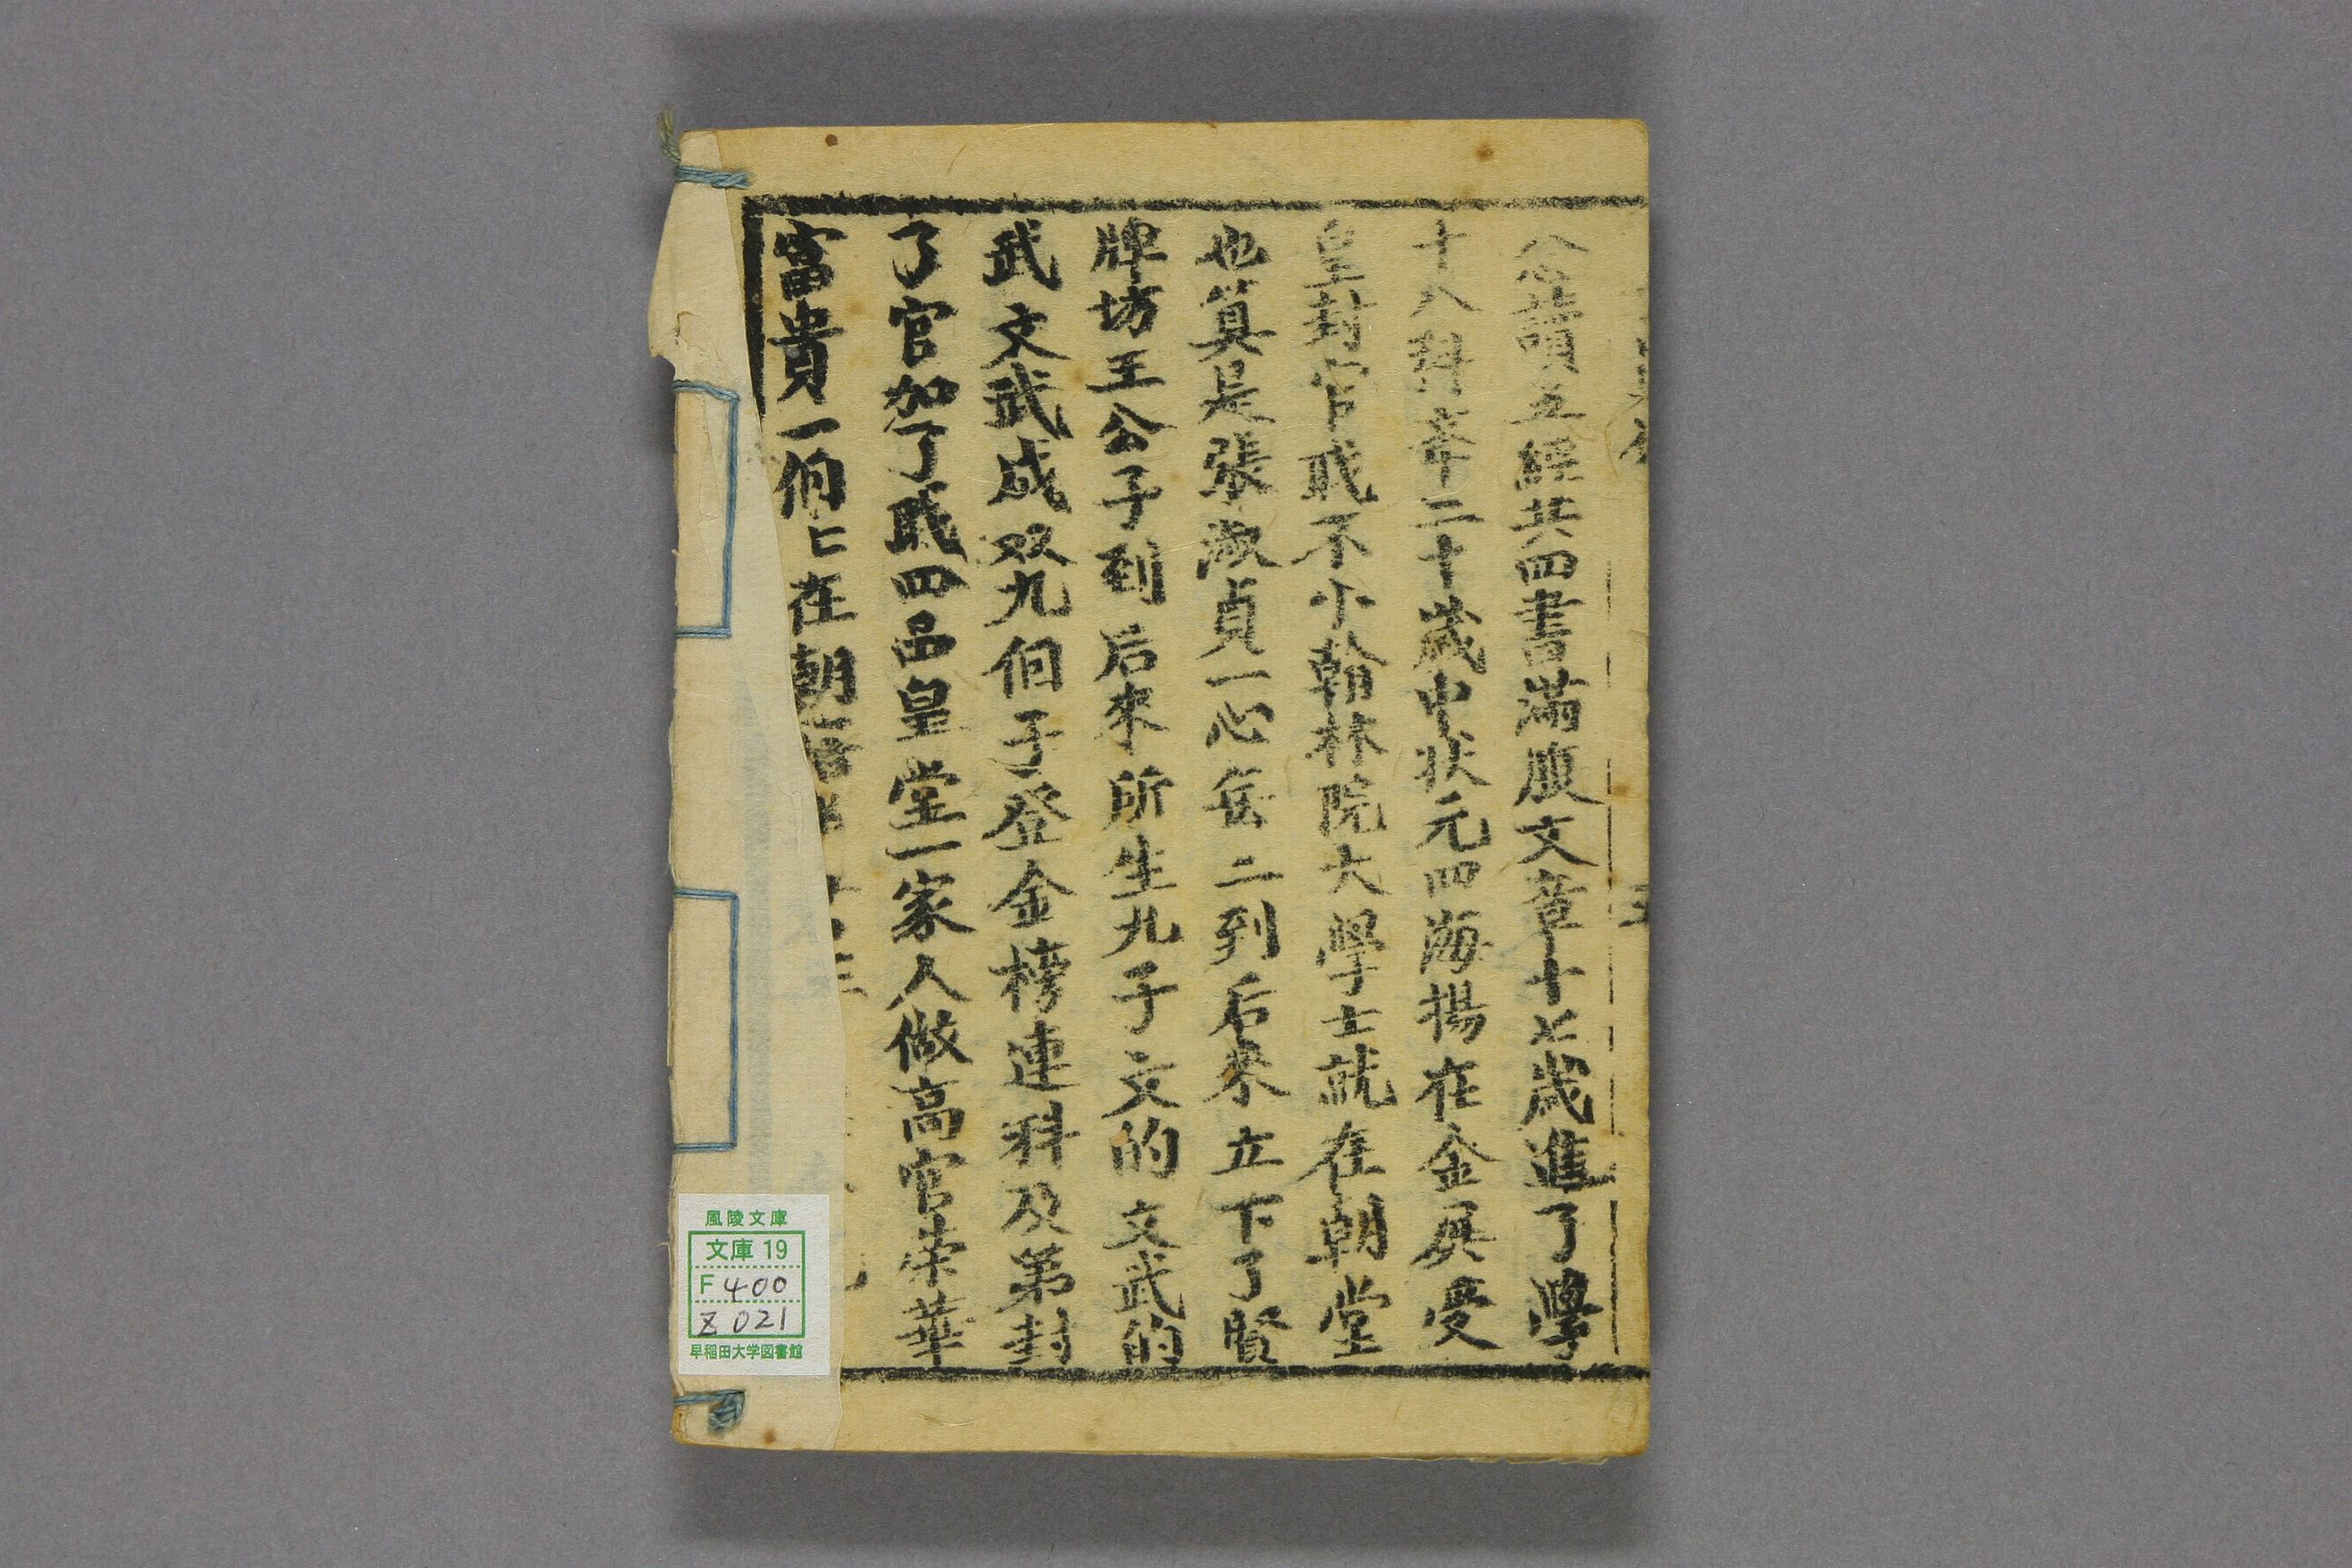 念讀五經共四書滿腹文章十七歲進了學
十八科峯二十歲中狀元四海揚在金展受
皇封官戝不小翰林院大學士就在朝堂
也算是張淑貞一心無二到后來立下了賢
牌坊王公子到后來所生九子文的文武的
武文武成双九個子登金榜連科及第封
了官加了戝四品皇堂一家人做高官荣華
富貴一個匕在朝
風陵文庫
文庫 19
F 400
Z 021
早稲田大学図書館